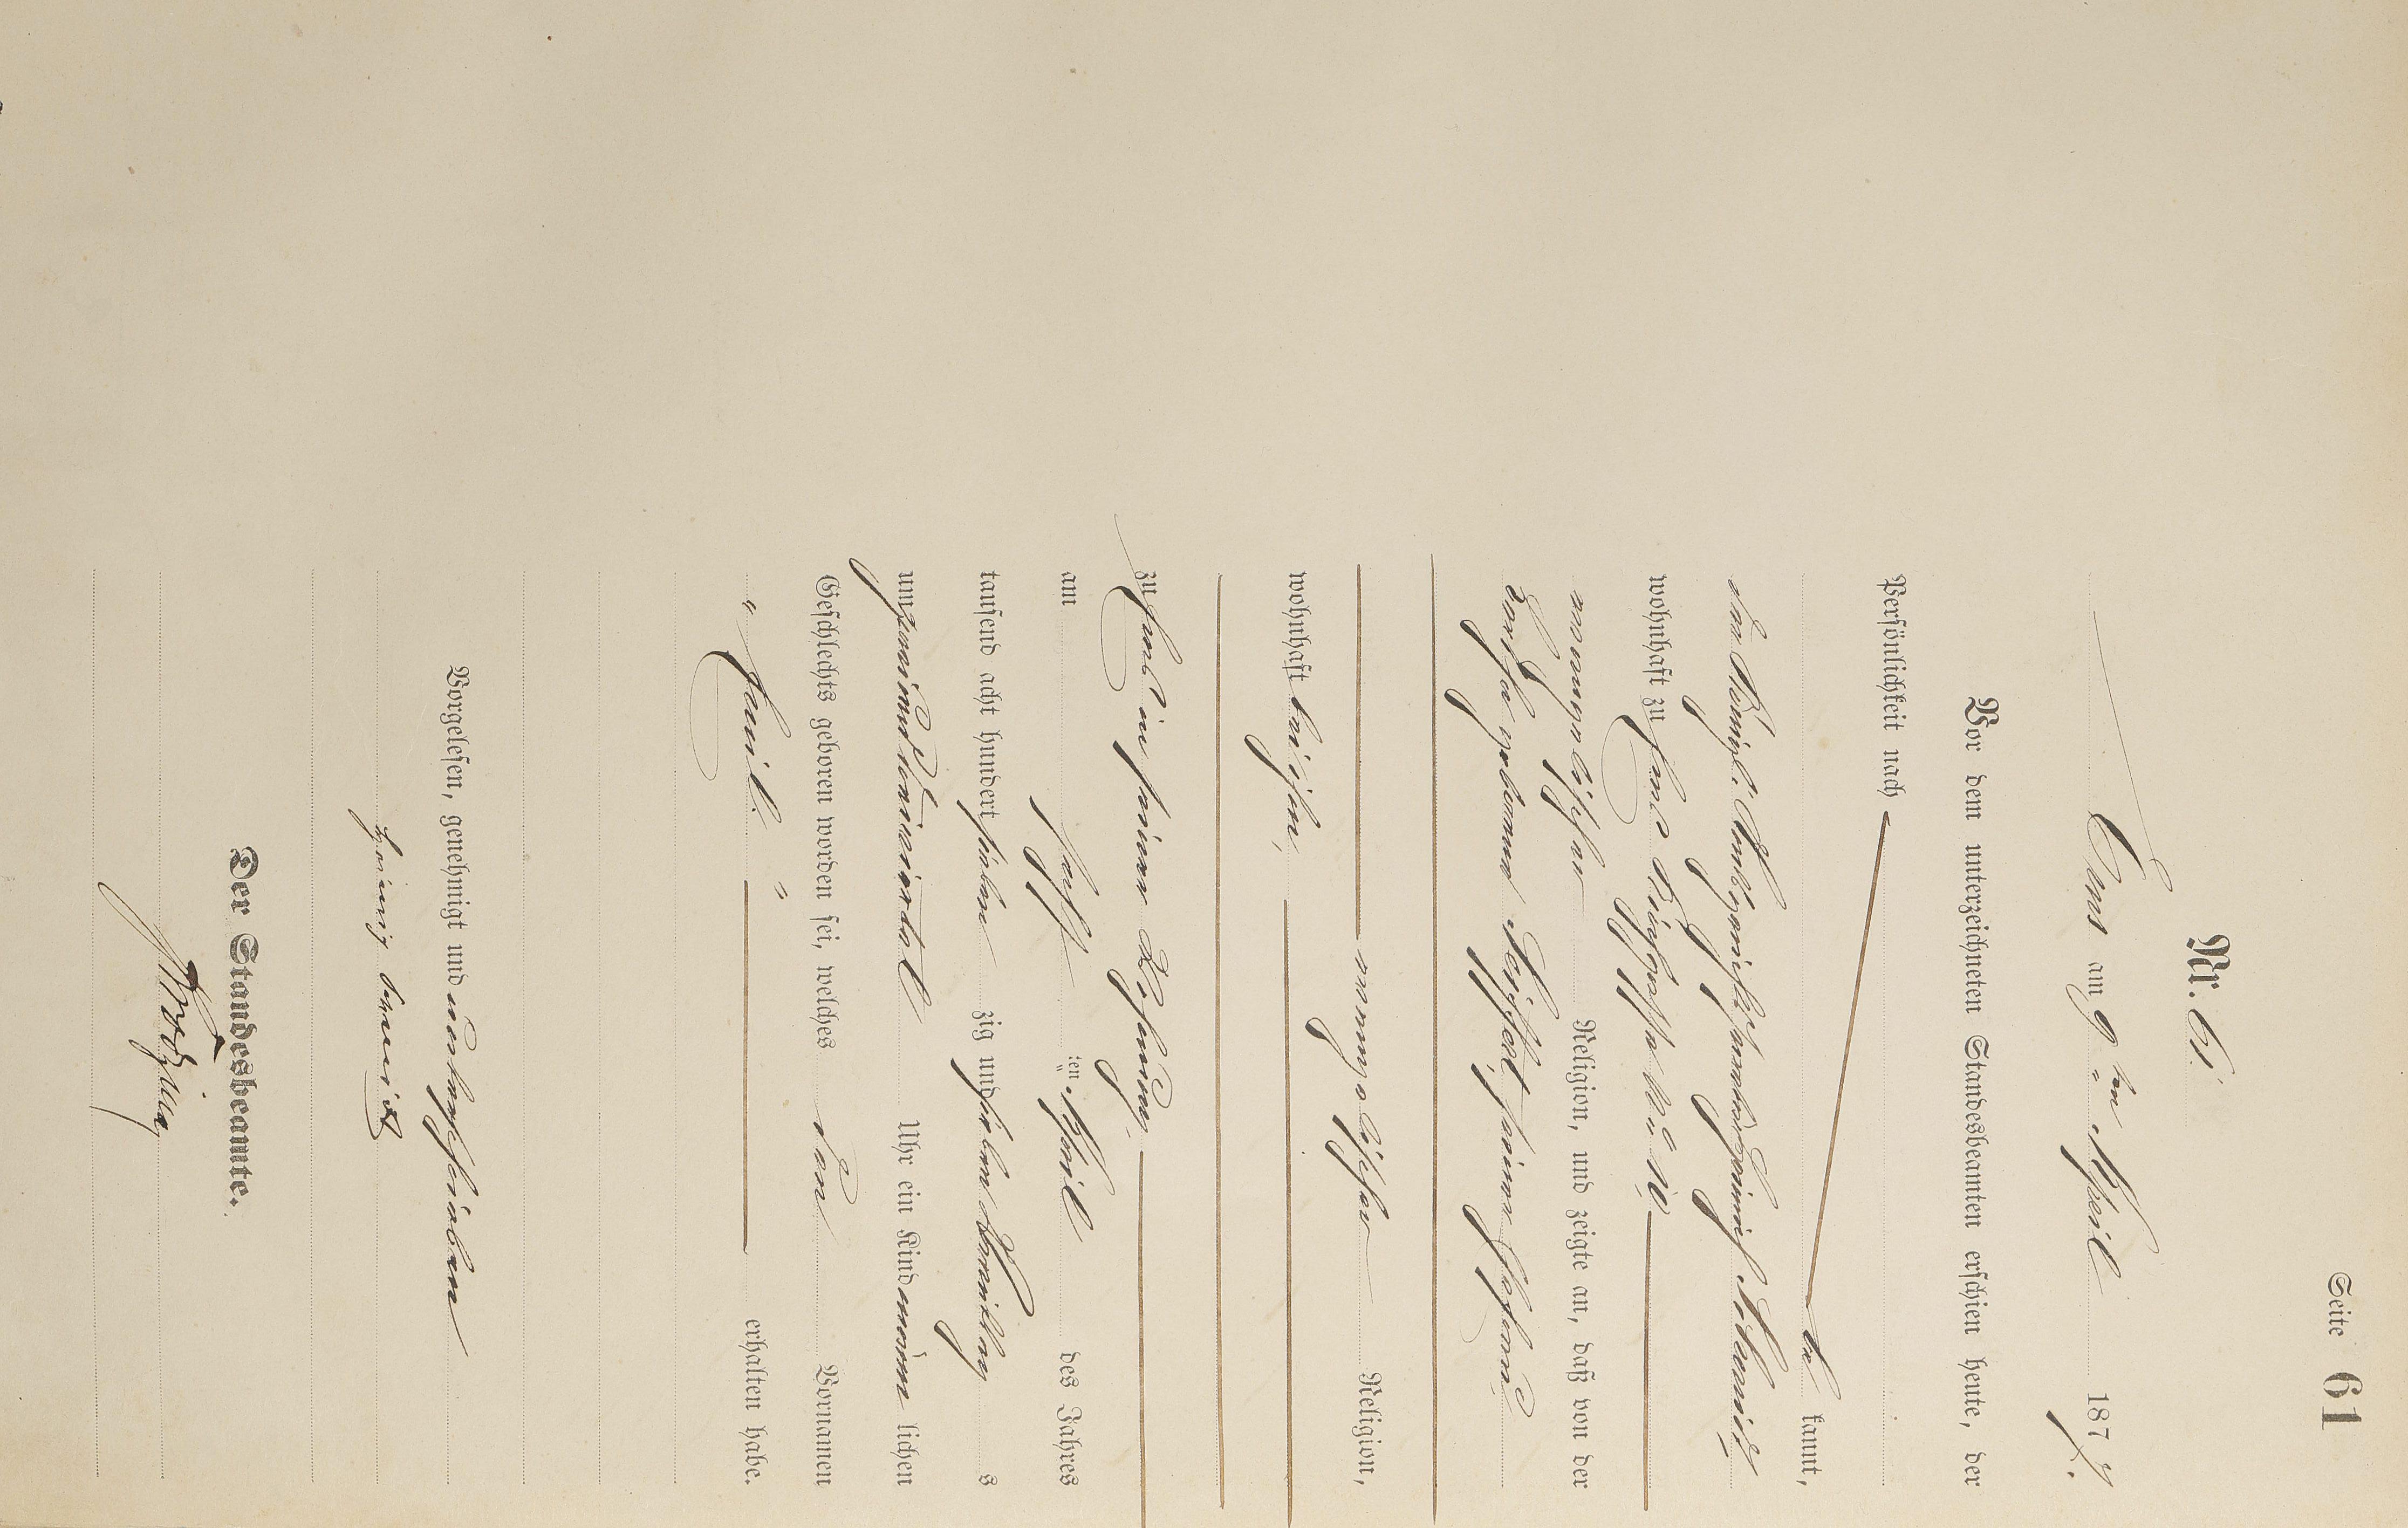 Seite 61
Nr. 61.
Ems am 9 ten April 1877.
Vor dem unterzeichneten Standesbeamten erschien heute, der
Persönlichkeit nach
be kannt,
der Königl. Amtsgerichtssecretär Heinrich Schmidt,
wohnhaft zu Ems No 10
evangelischer Religion, und zeigte an, daß von der
geborenen Seiffert, seiner Ehefrau
evangelischer Religion,
wohnhaft bei ihm,
zu Ems in seiner Wohnung
am fünften April des Jahres
tausend acht hundert sieben zig und sieben Vormittags
um zwei ein Viertel Uhr ein Kind männ lichen
Geschlechts geboren worden sei, welches den Vornamen
" Emil. " erhalten habe.
Vorgelesen, genehmigt und unterschrieben
Heinrich Schmidt
Der Standesbeamte.